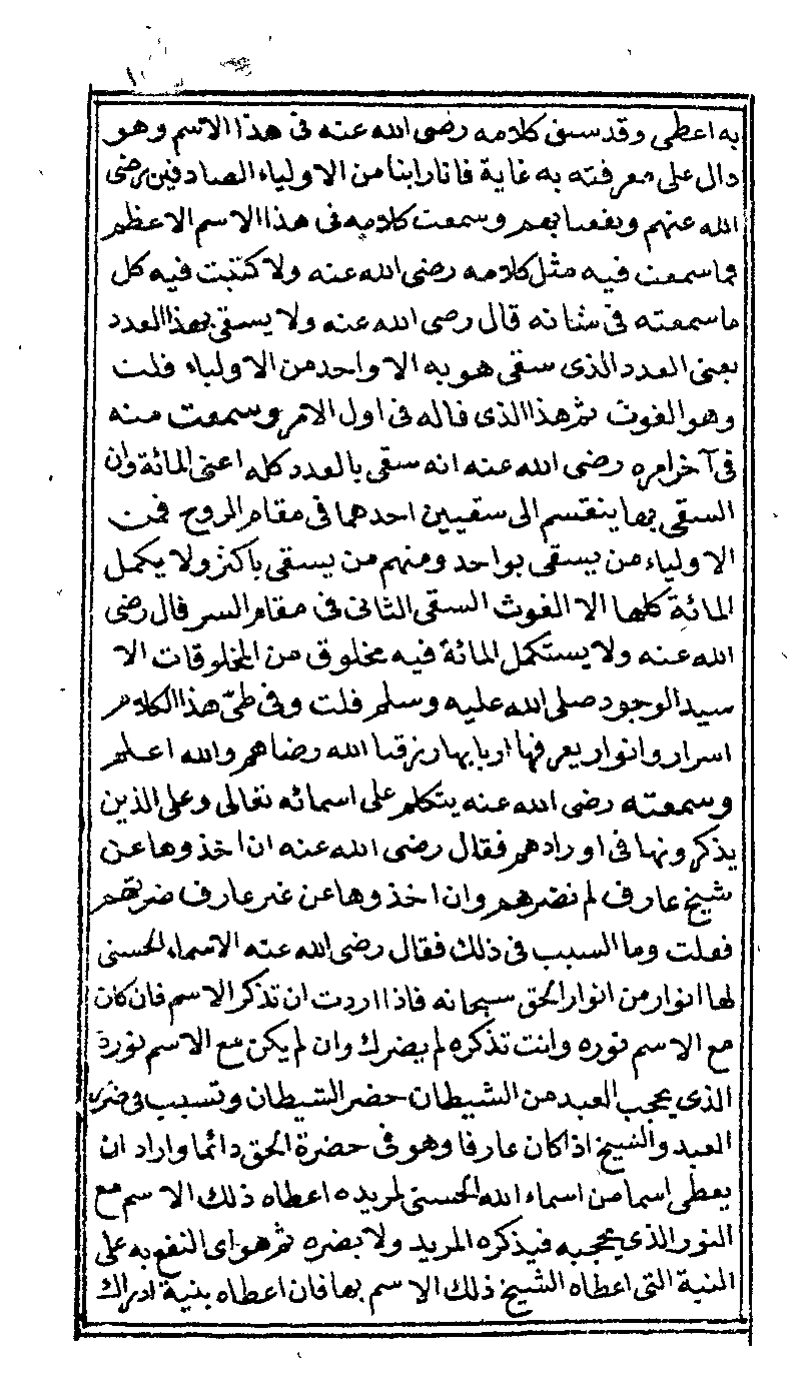 به اعطى وقد سبق كلامه رضى الله عنه فى هذا الاسم وهو
دال على معرفته به غاية فانا راينا من الاولياء الصادقين رضى
الله عنهم ونفعنا بهم وسمعت كلامه فى هذا الاسم الاعظم
فما سمعت فيه مثل كلامه رضى الله عنه ولا كتبت فيه كل
ما سمعته فى شانه قال رضى الله عنه ولا يسقى بهذا العدد
يعنى العدد الذى سقى هو به الا واحد من الاولياء قلت
وهو الغوث ثم هذا الذى قاله فى اول الامر وسمعت منه
فى آخر امره رضى الله عنه انه سقى بالعدد كله اعنى المائة وان
السقى بها ينقسم الى سقيين احدهما فى مقام الروح فمن
الاولياء من يسقى بواحد ومنهم من يسقى باكثر ولا يكمل
المائة كلها الا الغوث السقى الثانى فى مقام السر قال رضى
الله عنه ولا يستكمل المائة فيه مخلوق من المخلوقات الا
سيد الوجود صلى الله عليه وسلم قلت وفى طىّ هذا الكلام
اسرار وانوار يعرفها اربابها رزقنا الله رضاهم والله اعلم
وسمعته رضى الله عنه يتكلم على اسمائه تعالى وعلى الذين
يذكرونها فى اورادهم فقال رضى الله عنه ان اخذوها عن
شيخ عارف لم تضرهم وان اخذوها عن غير عارف ضرتهم
فقلت وما السبب فى ذلك فقال رضى الله عنه الاسماء الحسنى
لها انوار من انوار الحق سبحانه فاذا اردت ان تذكر الاسم فان كان
مع الاسم نوره وانت تذكره لم يضرك وان لم يكن مع الاسم نوره
الذى يحجب العبد من الشيطان حضر الشيطان وتسبب فى ضرر
العبد والشيخ اذا كان عارفا وهو فى حضرة الحق دائما واراد ان
يعطى اسما من اسماء الله الحسنى لمريده اعطاه ذلك الاسم مع
النور الذى يحجبه فيذكره المريد ولا يضره ثم هو اى النفع به على
النية التى اعطاه الشيخ ذلك الاسم بها فان اعطاه بنية ادراك